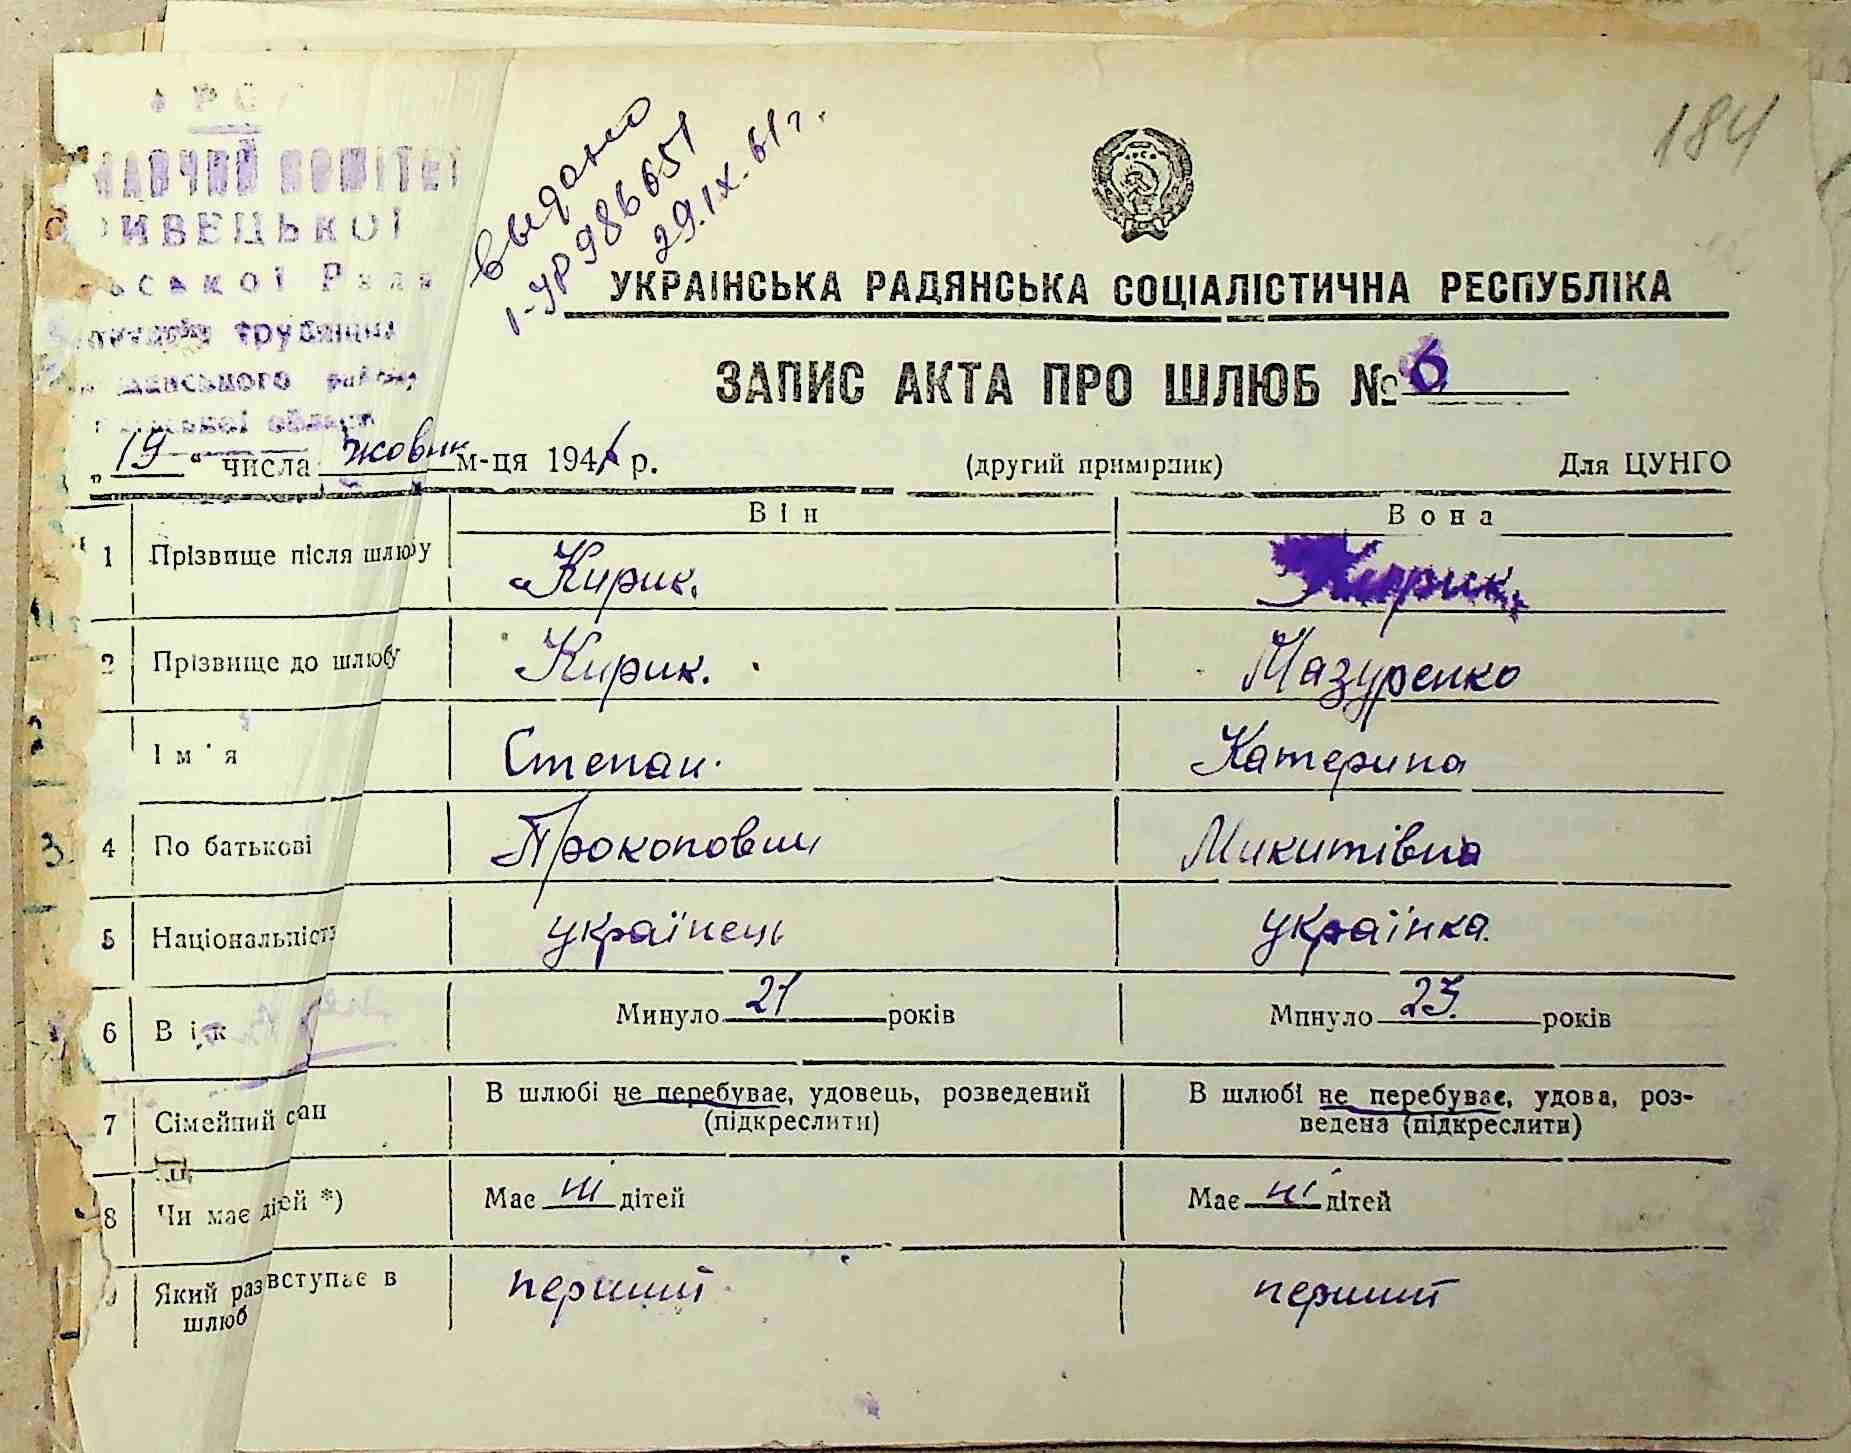 видано
І-УР 986651
29.ІХ.61 г.
184
КОМІТЕТ
УКРАІНСЬКА РАДЯНСЬКА СОЦІАЛІСТИЧНА РЕСПУБЛІКА
ЗАПИС АКТА ПРО ШЛЮБ № 6
„19“ числа жовтн м-ця 194 р. (другий примірник) Для ЦУНГО
Він Вона
1 Прізвище після шлюбу Кирик. Кирик.
2 Прізвище до шлюбу Кирик. Мазуренко
Ім'я Степан Катерина
4 По батькові Прокопович Микитівна
5 Національність українець українка
6 Вік Минуло 21 років Минуло 23 років
7 Сімейний сан В шлюбі не перебуває, удовець, розведений (підкреслити) В шлюбі не перебуває, удова, роз-
ведена (підкреслити)
8 Чи має дітей *) Має ні дітей Має ні дітей
Який раз вступає в шлюб перший перший